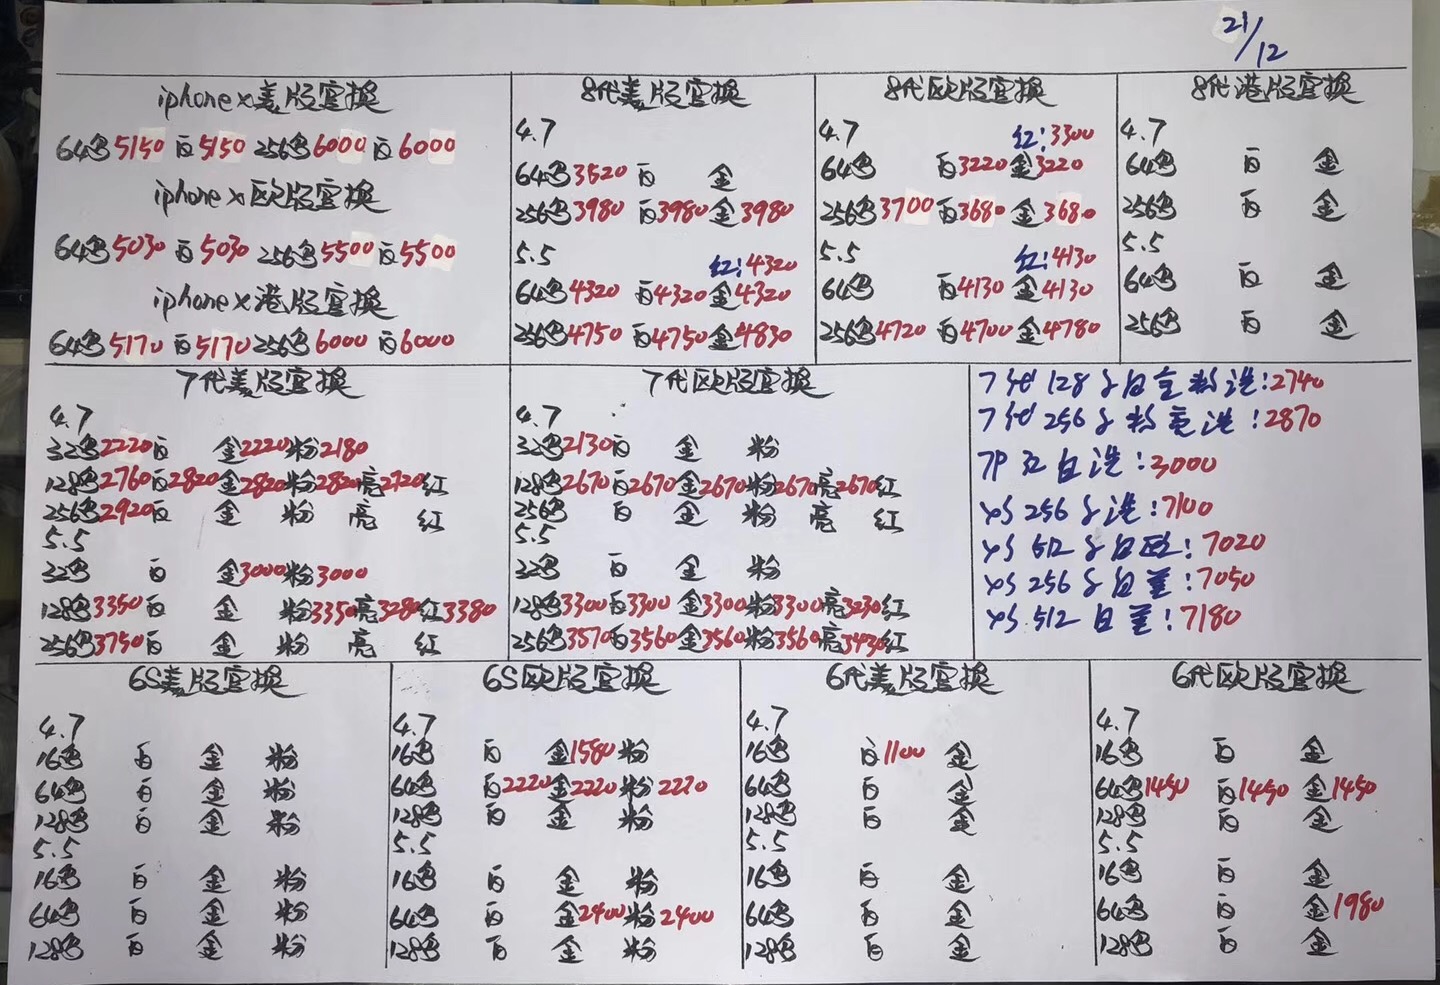 21/12
iphone x美版官换
64黑5150 白5150 256黑6000 白6000
iphone x欧版官换
64黑5030 白5030 256黑5500 白5500
iphone x港版官换
64黑5170 白5170 256黑6000 白6000
8代美版官换
4.7
64黑3520 白 金
256黑3980 白3980 金3980
5.5
红:4320
64黑4320 白4320 金4320
256黑4750 白4750 金4830
8代欧版官换
4.7
红:3300
64黑 白3220 金3220
256黑3700 白3680 金3680
5.5
红:4130
64黑 白4130 金4130
256黑4720 白4700 金4780
8代港版官换
4.7
64黑 白 金
256黑 白 金
5.5
64黑 白 金
256黑 白 金
7代美版官换
4.7
32黑2220白 金2220粉2180
128黑2760白2820金2820粉2820亮2720红
256黑2920白 金 粉 亮 红
5.5
32黑 白 金3000粉3000
128黑3350白 金 粉3350亮3280红3380
256黑3750白 金 粉 亮 红
7代欧版官换
4.7
32黑2130白 金 粉
128黑2670白2670金2670粉2670亮2670红
256黑 白 金 粉 亮 红
5.5
32黑 白 金 粉
128黑3300白3300金3300粉3300亮3230红
256黑3570白3560金3560粉3560亮3430红
7代128 白金粉港:2740
7代256 粉 港:2870
7P 白港:3000
xs 256 港:7100
xs 512 白欧:7020
xs 256 白美:7050
xs 512 白美:7180
6S美版官换
4.7
16黑 白 金 粉
64黑 白 金 粉
128黑 白 金 粉
5.5
16黑 白 金 粉
64黑 白 金 粉
128黑 白 金 粉
6S欧版官换
4.7
16黑 白 金1580粉
64黑 白2220金2220粉2220
128黑 白 金 粉
5.5
16黑 白 金 粉
64黑 白 金2400粉2400
128黑 白 金 粉
6代美版官换
4.7
16黑 白1100 金
64黑 白 金
128黑 白 金
5.5
16黑 白 金
64黑 白 金
128黑 白 金
6代欧版官换
4.7
16黑 白 金
64黑1450 白1450 金1450
128黑 白 金
5.5
16黑 白 金
64黑 白 金1980
128黑 白 金